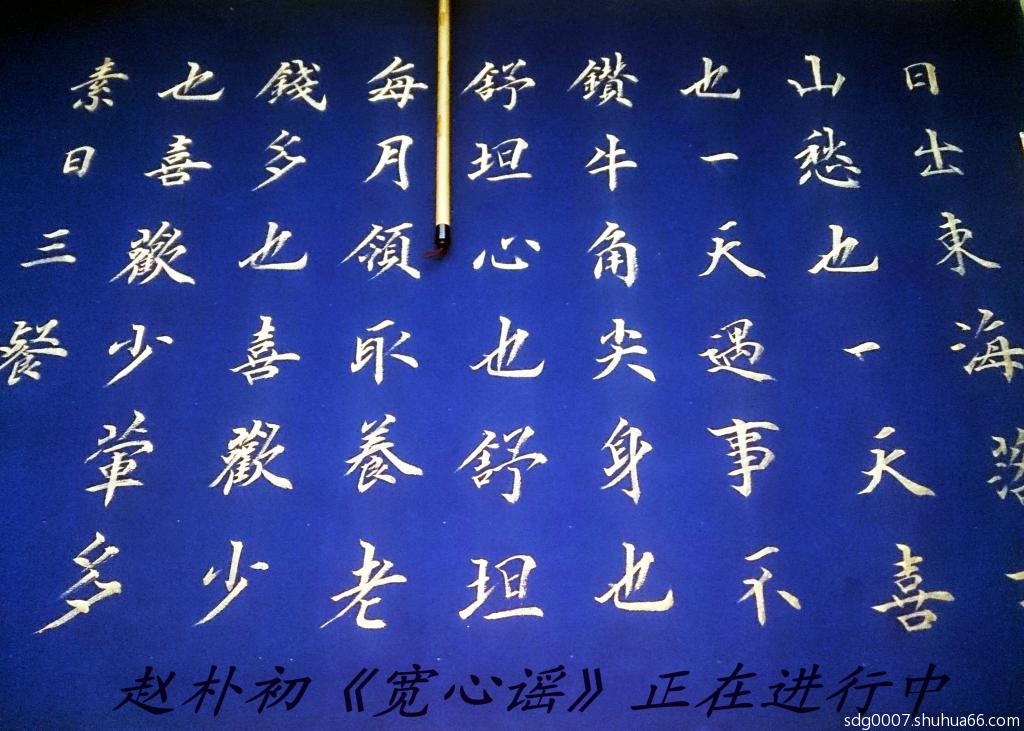 日出東海落
山愁也一天喜
也一天遇事不
鑽牛角尖身也
舒坦心也舒坦
每月領取養老
錢多也喜歡少
也喜歡少葷多
素日三餐
赵朴初《宽心谣》正在进行中
sdg0007.shuhua66.com